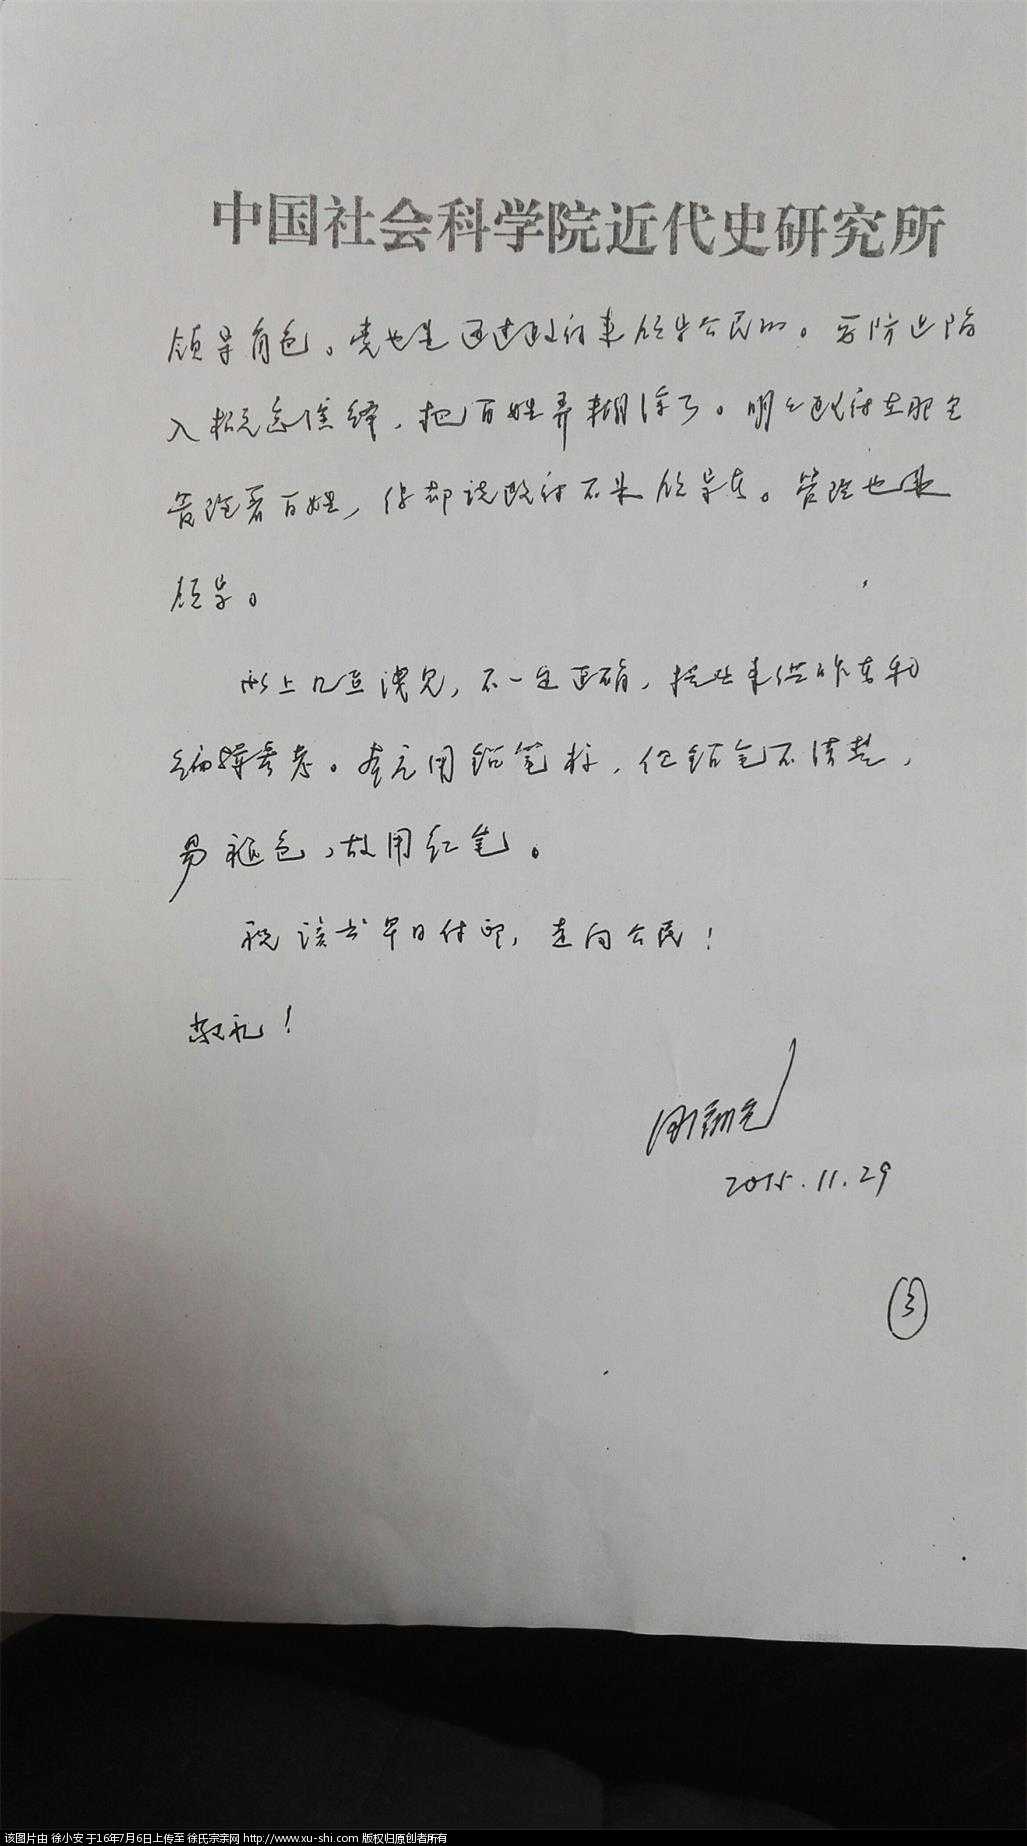 中国社会科学院近代史研究所
领导角色。党也是通过政府来领导公民的。要防止陷
入概念演绎，把百姓弄糊涂了。明明政府在那里
管理着百姓，你却说政府不是领导者。管理也是
领导。
以上几点浅见，不一定正确，提出来供作者和
编辑参考。本应用铅笔标，但铅笔不清楚，
易褪色，故用红笔。
祝该书早日付印，走向公民！
敬礼！
2015.11.29
3
该图片由 徐小安 于16年7月6日上传至 徐氏宗亲网 http://www.xu-shi.com 版权归原创者所有